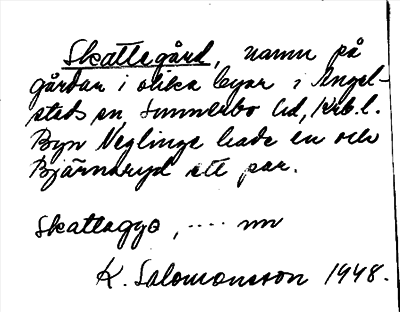 Skattegård, namn på
gårdar i olika byar i Angel-
stads sn, Sunnerbo hd, Krb. l.
Byn Neglinge hade en och
Bjärnaryd ett par.
Skattagya, .... nn
K. Salomonsson 1948.